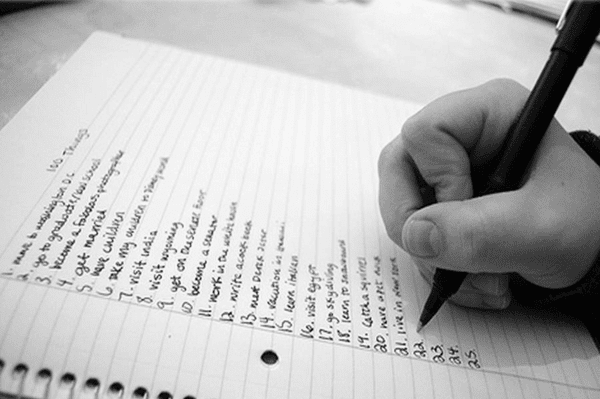 100 Things
1. move to washington D.C.
2. go to graduate/law school
3. become a fabulous photographer
4. get married
5. have children
6. take my children to disney world
7. visit India
8. visit wyoming
9. get on the senate floor
10. become a senator
11. work in the white house
12. write a cook book
13. meet
14. vacation in
15. learn italian
16. visit egypt
17. go skydiving
18. learn to snowboard
19. catch a squirrel
20. have a pet
21. live in New York
22.
23.
24.
25.